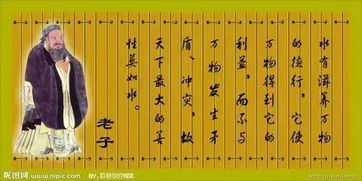 水有滋养万物
的德行。它使
万物得到它的
利益。而不与
万物发生矛
盾、冲突。故
天下最大的善
性莫如水。
老子
昵图网 www.nipic.com